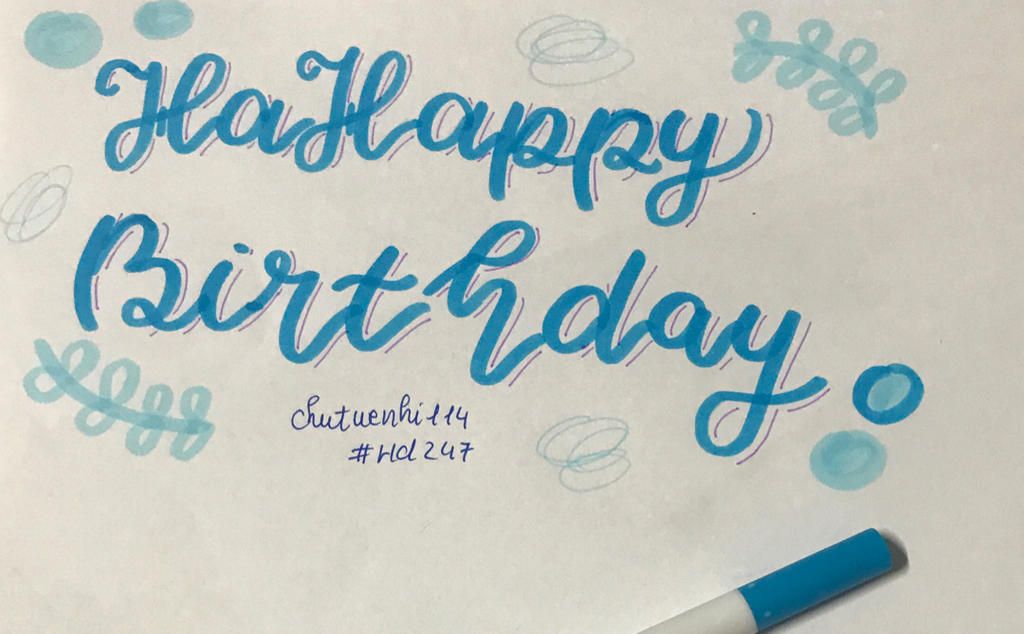 HaHappy
Birthday.
chutuenhi114
#Hd247